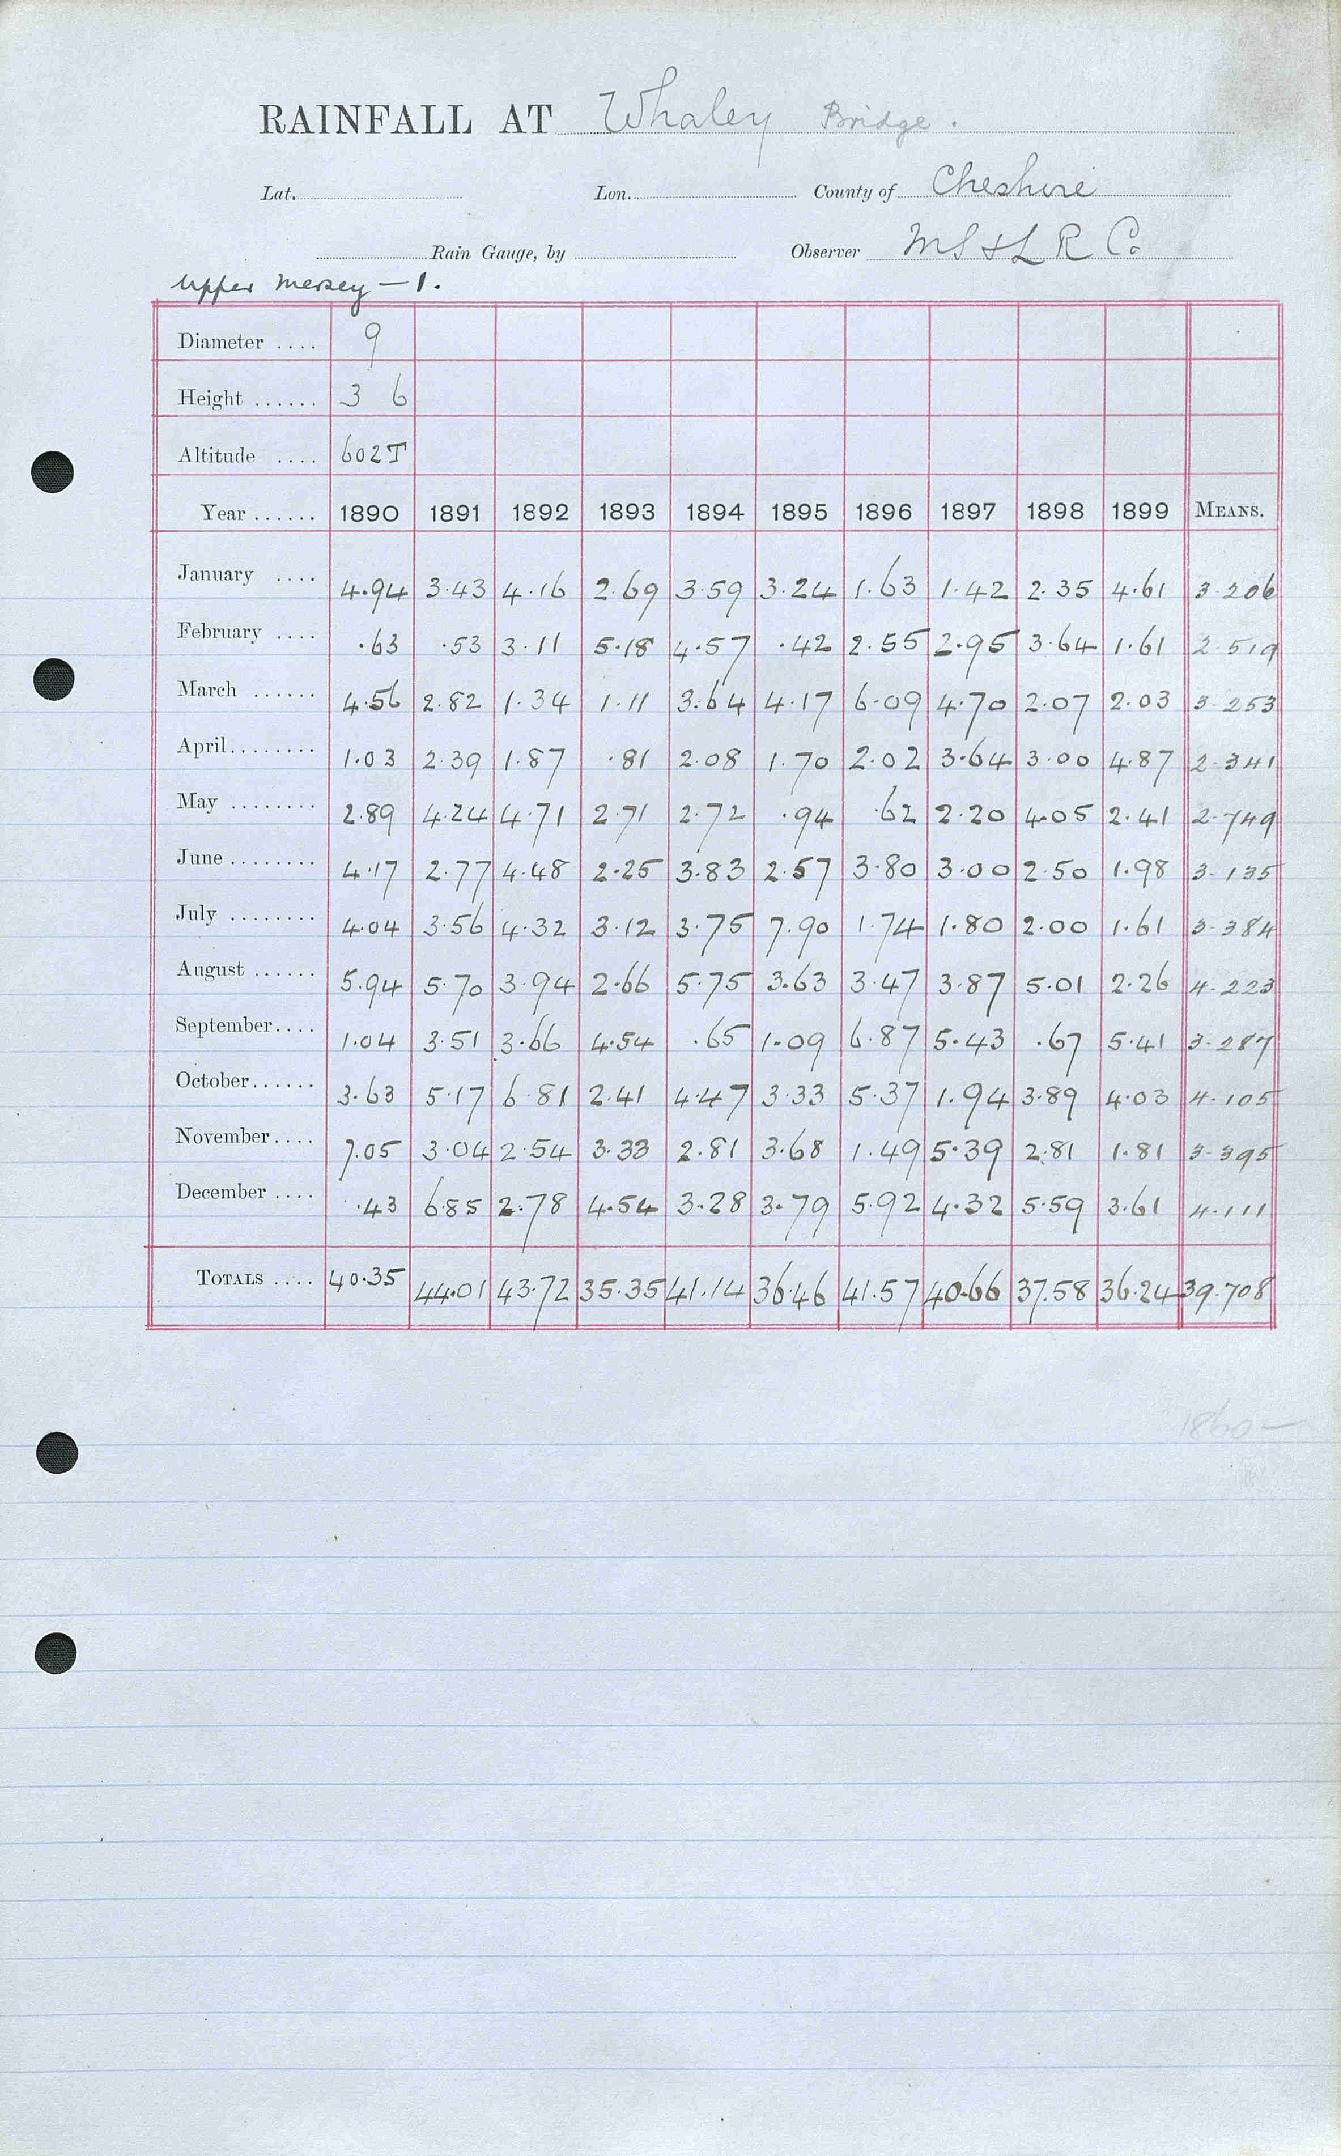 RAINFALL AT Whaley Bridge.
Lat. Lon. County of Cheshire
Rain Gauge, by Observer M S & L R Co
Upper Mersey — 1.
Diameter .... 9
Height ...... 3 6
Altitude .... 602T
Year ...... 1890 1891 1892 1893 1894 1895 1896 1897 1898 1899 MEANS.
January .... 4.94 3.43 4.16 2.69 3.59 3.24 1.63 1.42 2.35 4.61 3.206
February .... .63 .53 3.11 5.18 4.57 .42 2.55 2.95 3.64 1.61 2.519
March ...... 4.56 2.82 1.34 1.11 3.64 4.17 6.09 4.70 2.07 2.03 3.253
April ........ 1.03 2.39 1.87 .81 2.08 1.70 2.02 3.64 3.00 4.87 2.341
May ........ 2.89 4.24 4.71 2.71 2.72 .94 .62 2.20 4.05 2.41 2.749
June ........ 4.17 2.77 4.48 2.25 3.83 2.57 3.80 3.00 2.50 1.98 3.135
July ........ 4.04 3.56 4.32 3.12 3.75 7.90 1.74 1.80 2.00 1.61 3.384
August ...... 5.94 5.70 3.94 2.66 5.75 3.63 3.47 3.87 5.01 2.26 4.223
September .... 1.04 3.51 3.66 4.54 .65 1.09 6.87 5.43 .67 5.41 3.287
October ...... 3.63 5.17 6.81 2.41 4.47 3.33 5.37 1.94 3.89 4.03 4.105
November .... 7.05 3.04 2.54 3.33 2.81 3.68 1.49 5.39 2.81 1.81 3.395
December .... .43 6.85 2.78 4.54 3.28 3.79 5.92 4.32 5.59 3.61 4.111
TOTALS .... 40.35 44.01 43.72 35.35 41.14 36.46 41.57 40.66 37.58 36.24 39.708
1860—